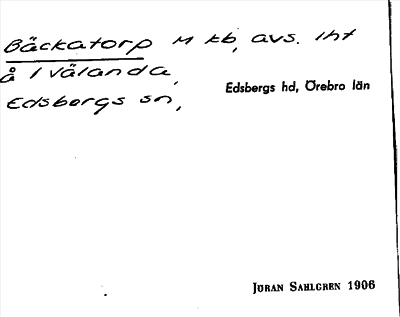 Bäckatorp M kb, avs. lht
å / Välanda,
Edsbergs sn,
Edsbergs hd, Örebro län
JÖRAN SAHLGREN 1906